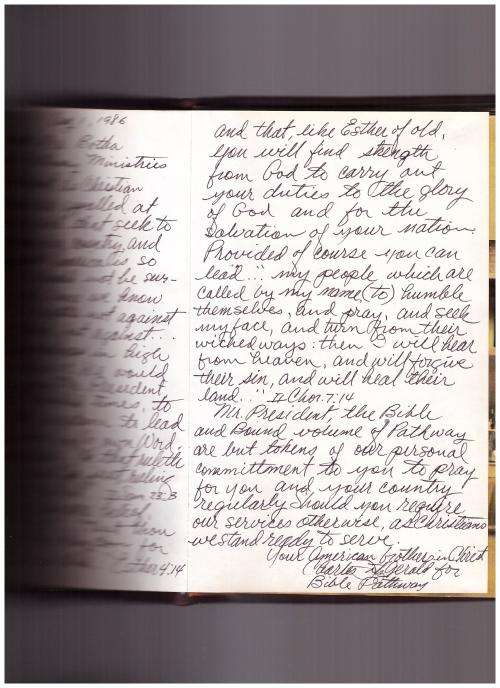 1, 1986
Botha
Ministries
Christian
called at
that seek to
country and
so
not be sur-
we know
against
against...
in high
would
President,
times, to
to lead
Word.
ruling
23:3
thou
for
Esther 4:14
and that, like Esther of old,
you will find strength
from God to carry out
your duties to the glory
of God and for the
Salvation of your nation.
Provided of course you can
lead "... my people, which are
called by my name (to) humble
themselves, and pray, and seek
my face, and turn from their
wicked ways: then I will hear
from heaven, and will forgive
their sin, and will heal their
land..." II Chor. 7:14
Mr. President, the Bible
and Bound volume of Pathway
are but tokens of our personal
committment to you to pray
for you and your country
regularly. Should you require
our services otherwise, as Christians
we stand ready to serve.
Your American Brother in Christ
Charles for
Bible Pathway